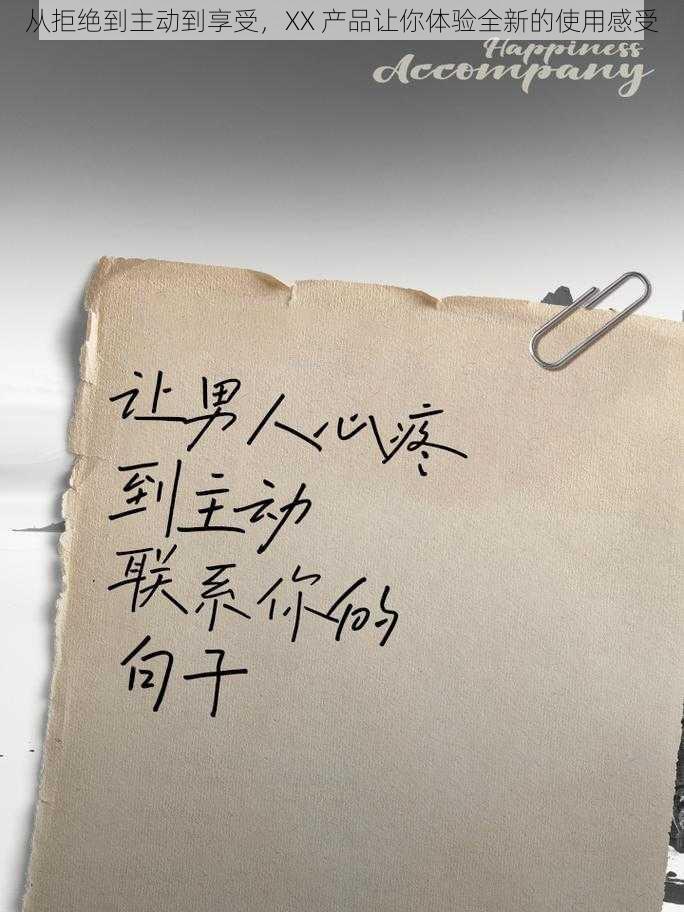 从拒绝到主动到享受，XX 产品让你体验全新的使用感受
Happiness
Accompany
让男人心疼
到主动
联系你的
句子